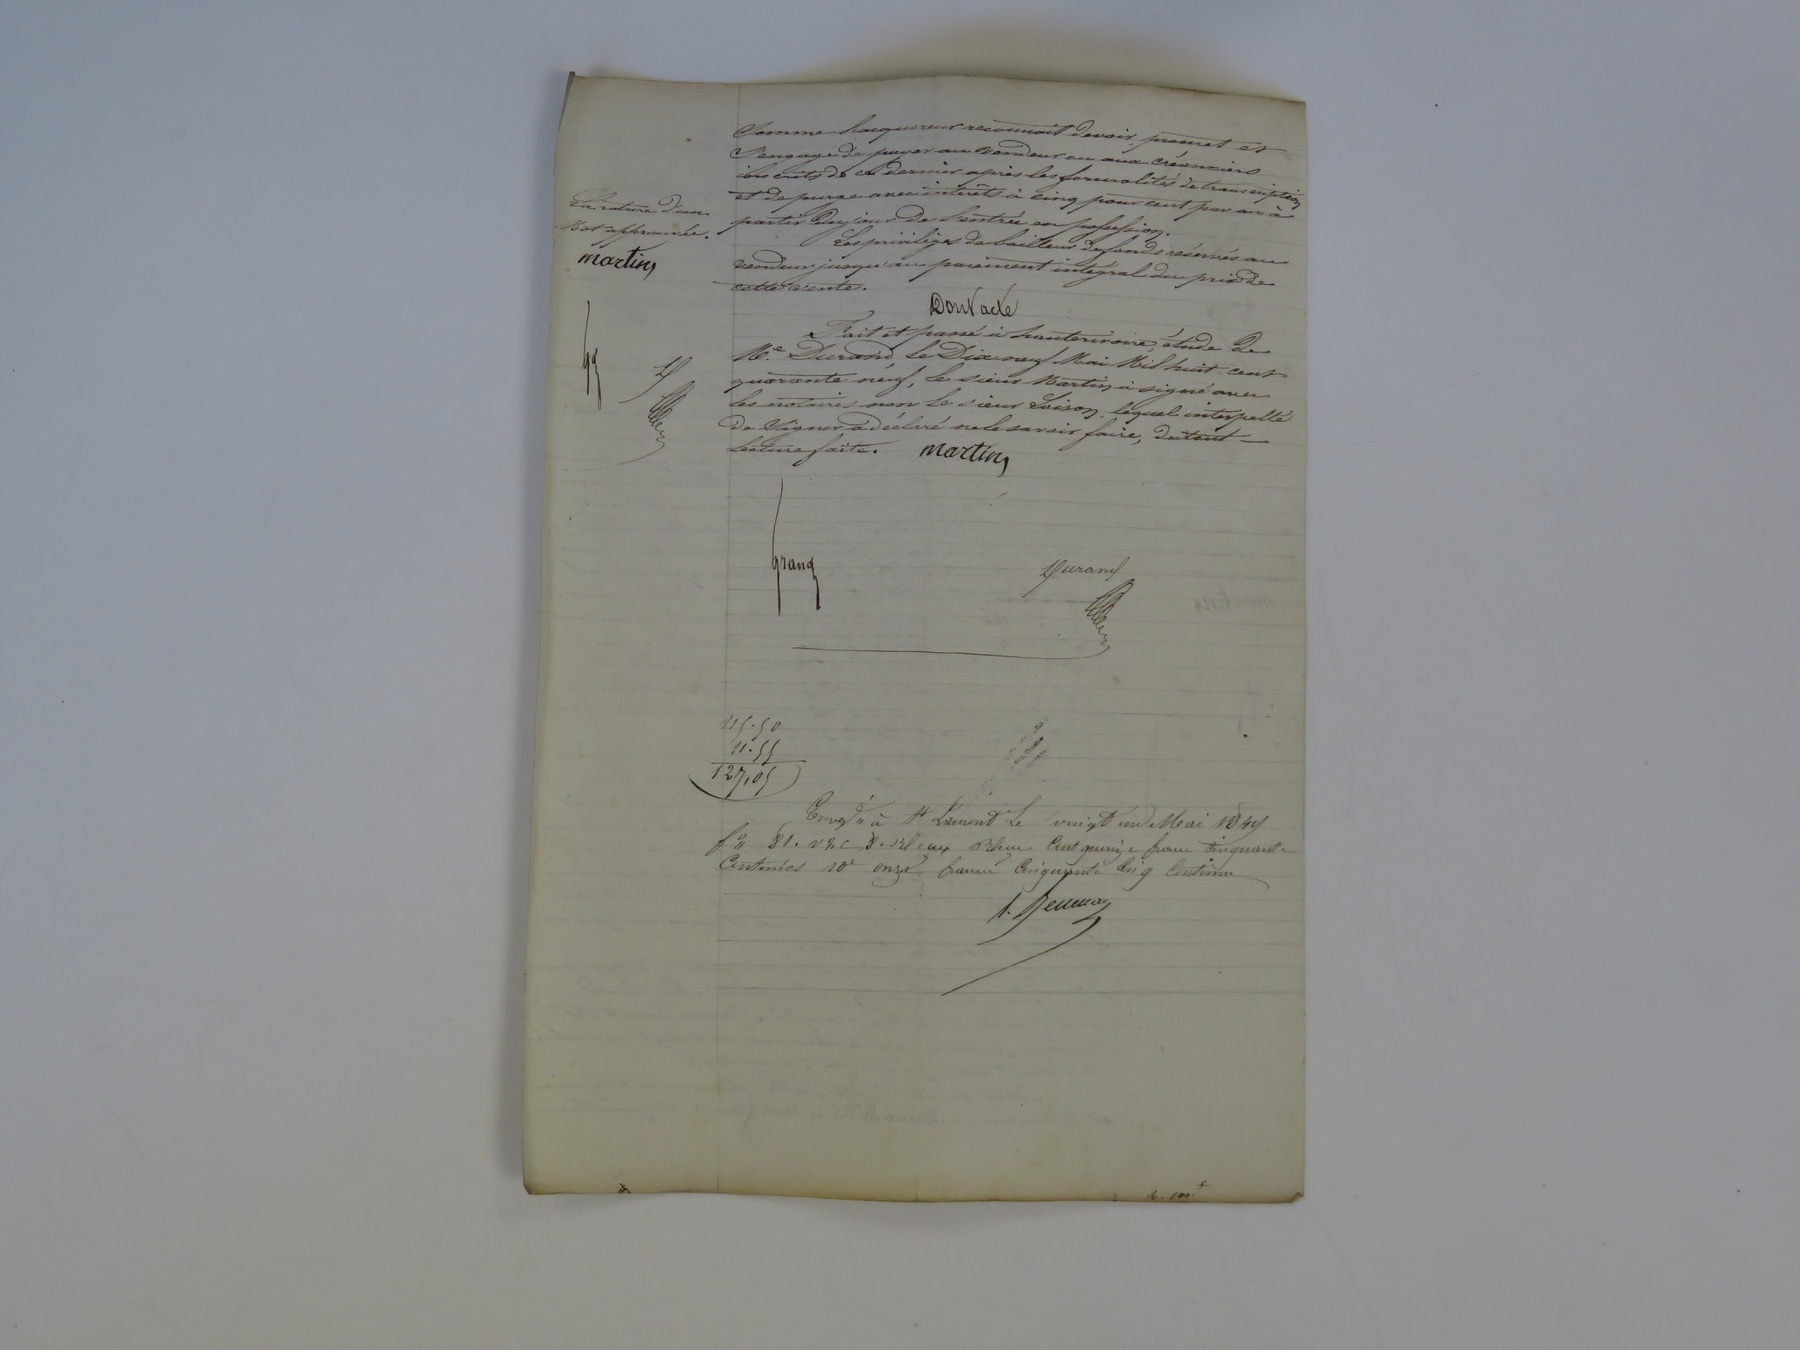 Somme l'acquereur reconnoit devoir, promet et
S'engage de payer au Vendeur ou aux Créanciers
inscrits de ce dernier après les formalités de transcription
et de purge avec interêts à cinq pour cent par an à
partir du jour de l'entrée en possession.
Les privilèges de bailleur de fonds réservés au
vendeur jusqu'au paiement intégral du prix de
cette vente.
Dont acte
Fait et passé à hauterivoire, étude de
Me. Durand, le Dix neuf Mai Mil huit cent
quarante neuf, le sieur Martin a signé avec
les notaires non le sieur Loison, lequel interpellé
de Signer a déclaré ne le savoir faire, du tout
Lecture faite.
martin
grand
Durand
La rature d'un
Mot approuvée.
martin
115.50
11.55
127,05
Enreg. à St Laurent Le vingt un Mai 1849
fo 81. Reçu Cent quinze francs Cinquante
Centimes 10e onze francs Cinquante Cinq Centimes